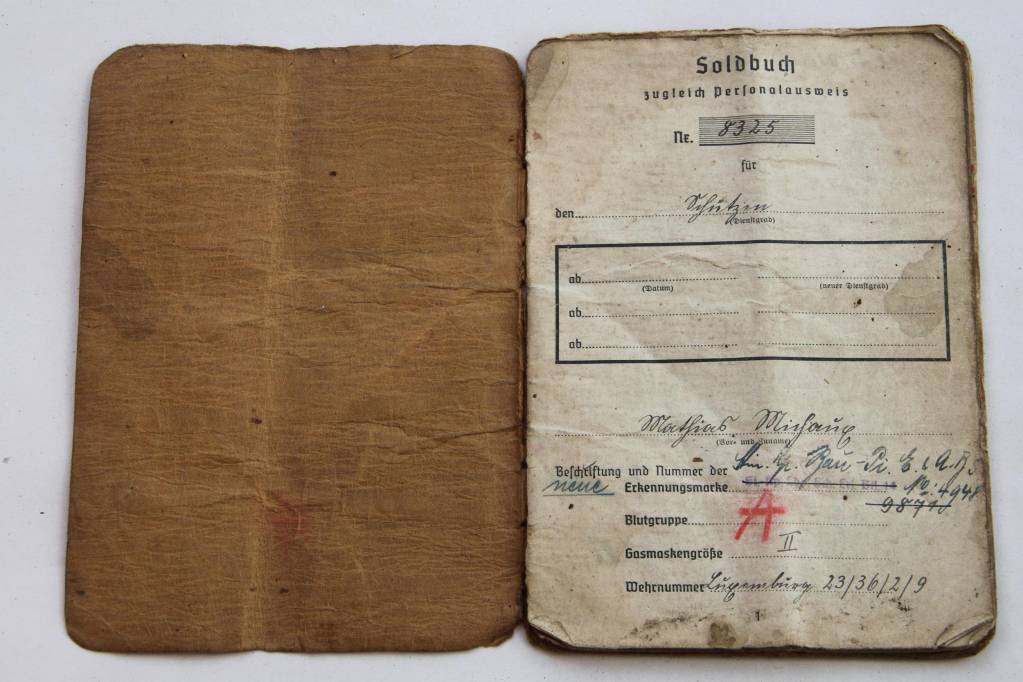 Soldbuch
zugleich Personalausweis
Nr. 8325
für
den Schützen
(Dienstgrad)
ab
(Datum) (neuer Dienstgrad)
ab
ab
Mathias Michaux
(Vor- und Zuname)
Beschriftung und Nummer der Bau-Pi. E. u. A. B 5
neue Erkennungsmarke No. 4948
Blutgruppe A
Gasmaskengröße II
Wehrnummer Luxemburg 23/36/2/9
1